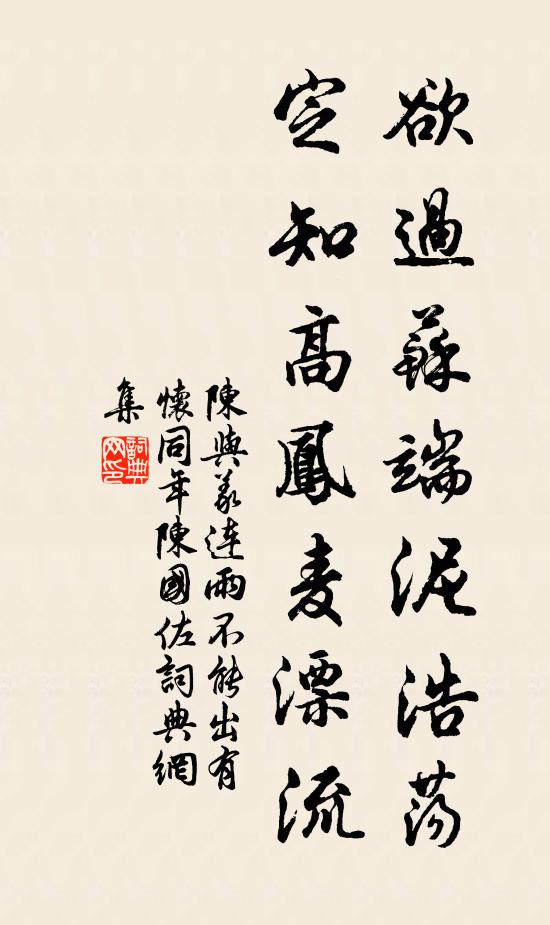 欲過蘇端泥浩蕩
定知高鳳麦漂流
陳與義連雨不能出有
懷同年陳國佐詞典網
集
詞典
网